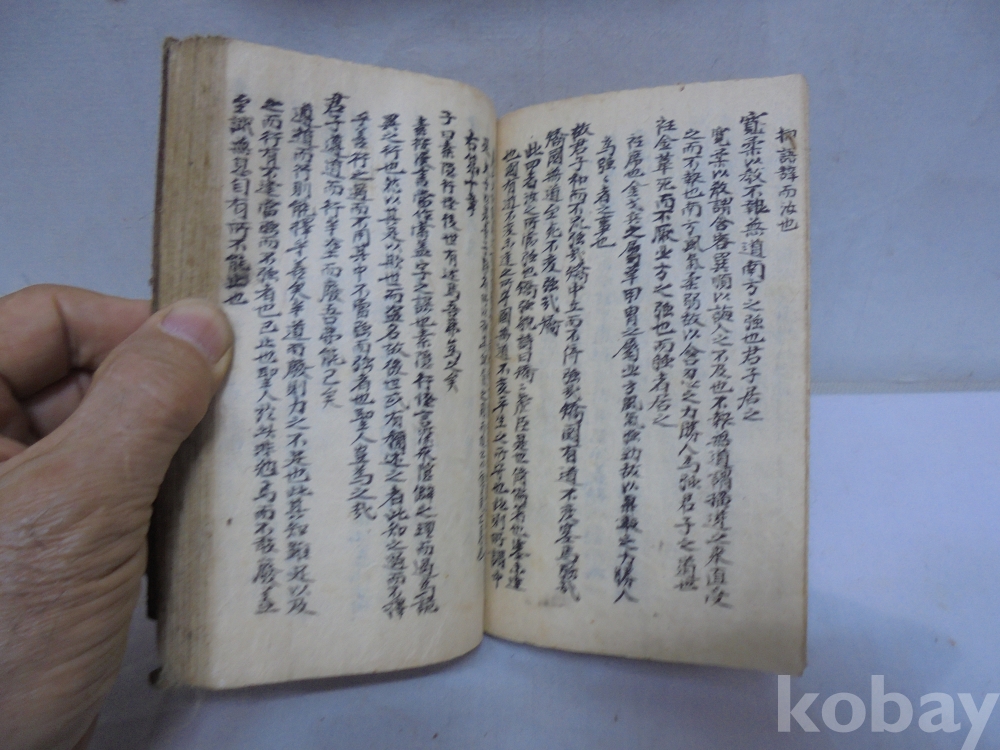 抑語辭而汝也
寬柔以敎不報無道南方之強也君子居之
寬柔以敎謂含容巽順以誨人之不及也不報無道謂橫逆之來直受
之而不報也南方風氣柔弱故以含忍之力勝人爲强君子之道也
衽金革死而不厭北方之强也而强者居之
衽席也金戈兵之屬革甲冑之屬北方風氣强勁故以果敢之力勝人
爲强々者之事也
故君子和而不流强哉矯中立而不倚强哉矯國有道不變塞焉强哉
矯國無道至死不变强哉矯
此四者汝之所當强也矯强貌詩曰矯々虎臣是也倚偏著也塞未達
也國有道不变未達之所守國無道不变平生之所守也此則所謂中
右第十章
子曰素隱行怪後世有述焉吾弗爲之矣
素按漢書當作索盖字之誤也素隱行怪言深求隱僻之理而過爲詭
異之行也然以其足以欺世而盜名故後世或有稱述之者此知之過而不擇
乎善行之過而不用其中不當强而强者也聖人豈爲之哉
君子遵道而行半塗而廢吾弗能已矣
遵道而行則能擇乎善矣半塗而廢則力之不足也此其知雖足以及
之而行有不逮當强而不强者也已止也聖人於此非勉焉而不敢廢盖
至誠無息自有所不能止也
kobay